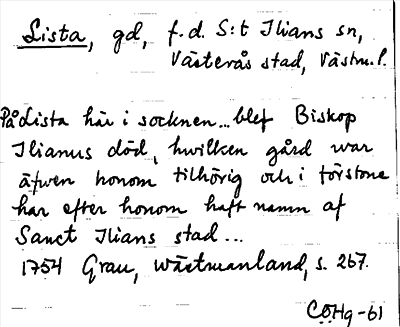 Lista, gd, f.d. S:t Ilians sn,
Västerås stad, Västm.l.
På Lista här i socknen... blef Biskop
Ilianus död, hwilken gård war
äfwen honom tilhörig och i förstone
har efter honom haft namn af
Sanct Ilians stad...
1754 Grau, Wästmanland, s. 267.
COHg-61